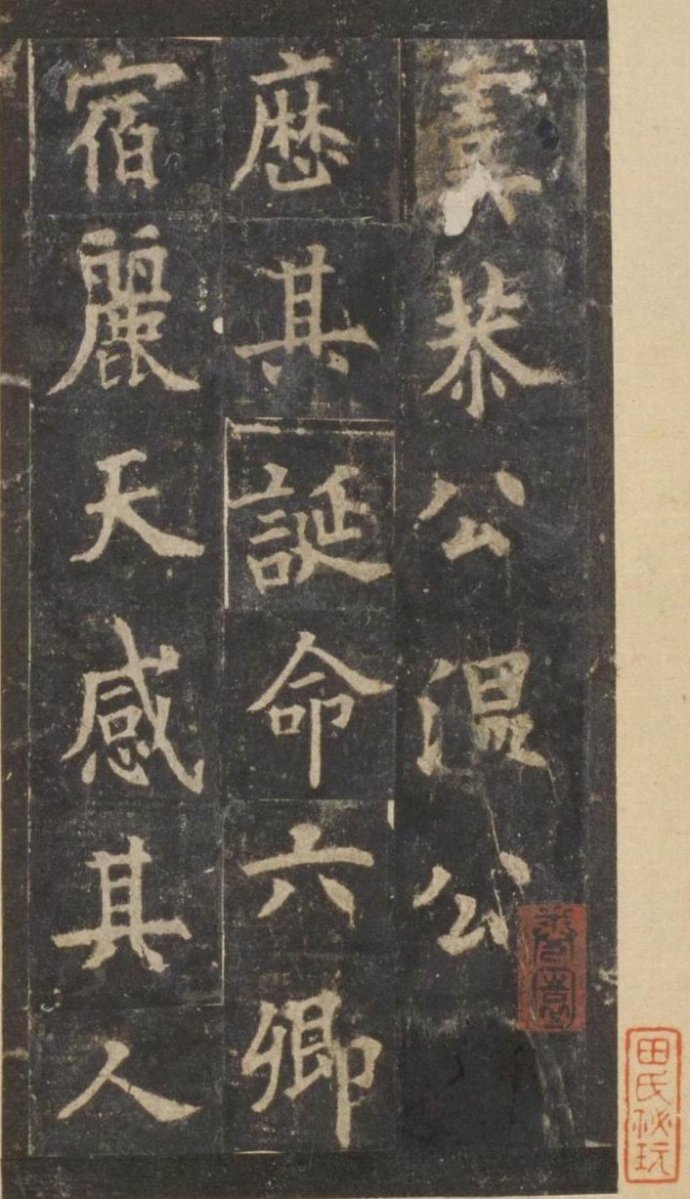 恭公温公
歴其誕命六卿
宿麗天感其人
田氏祕玩